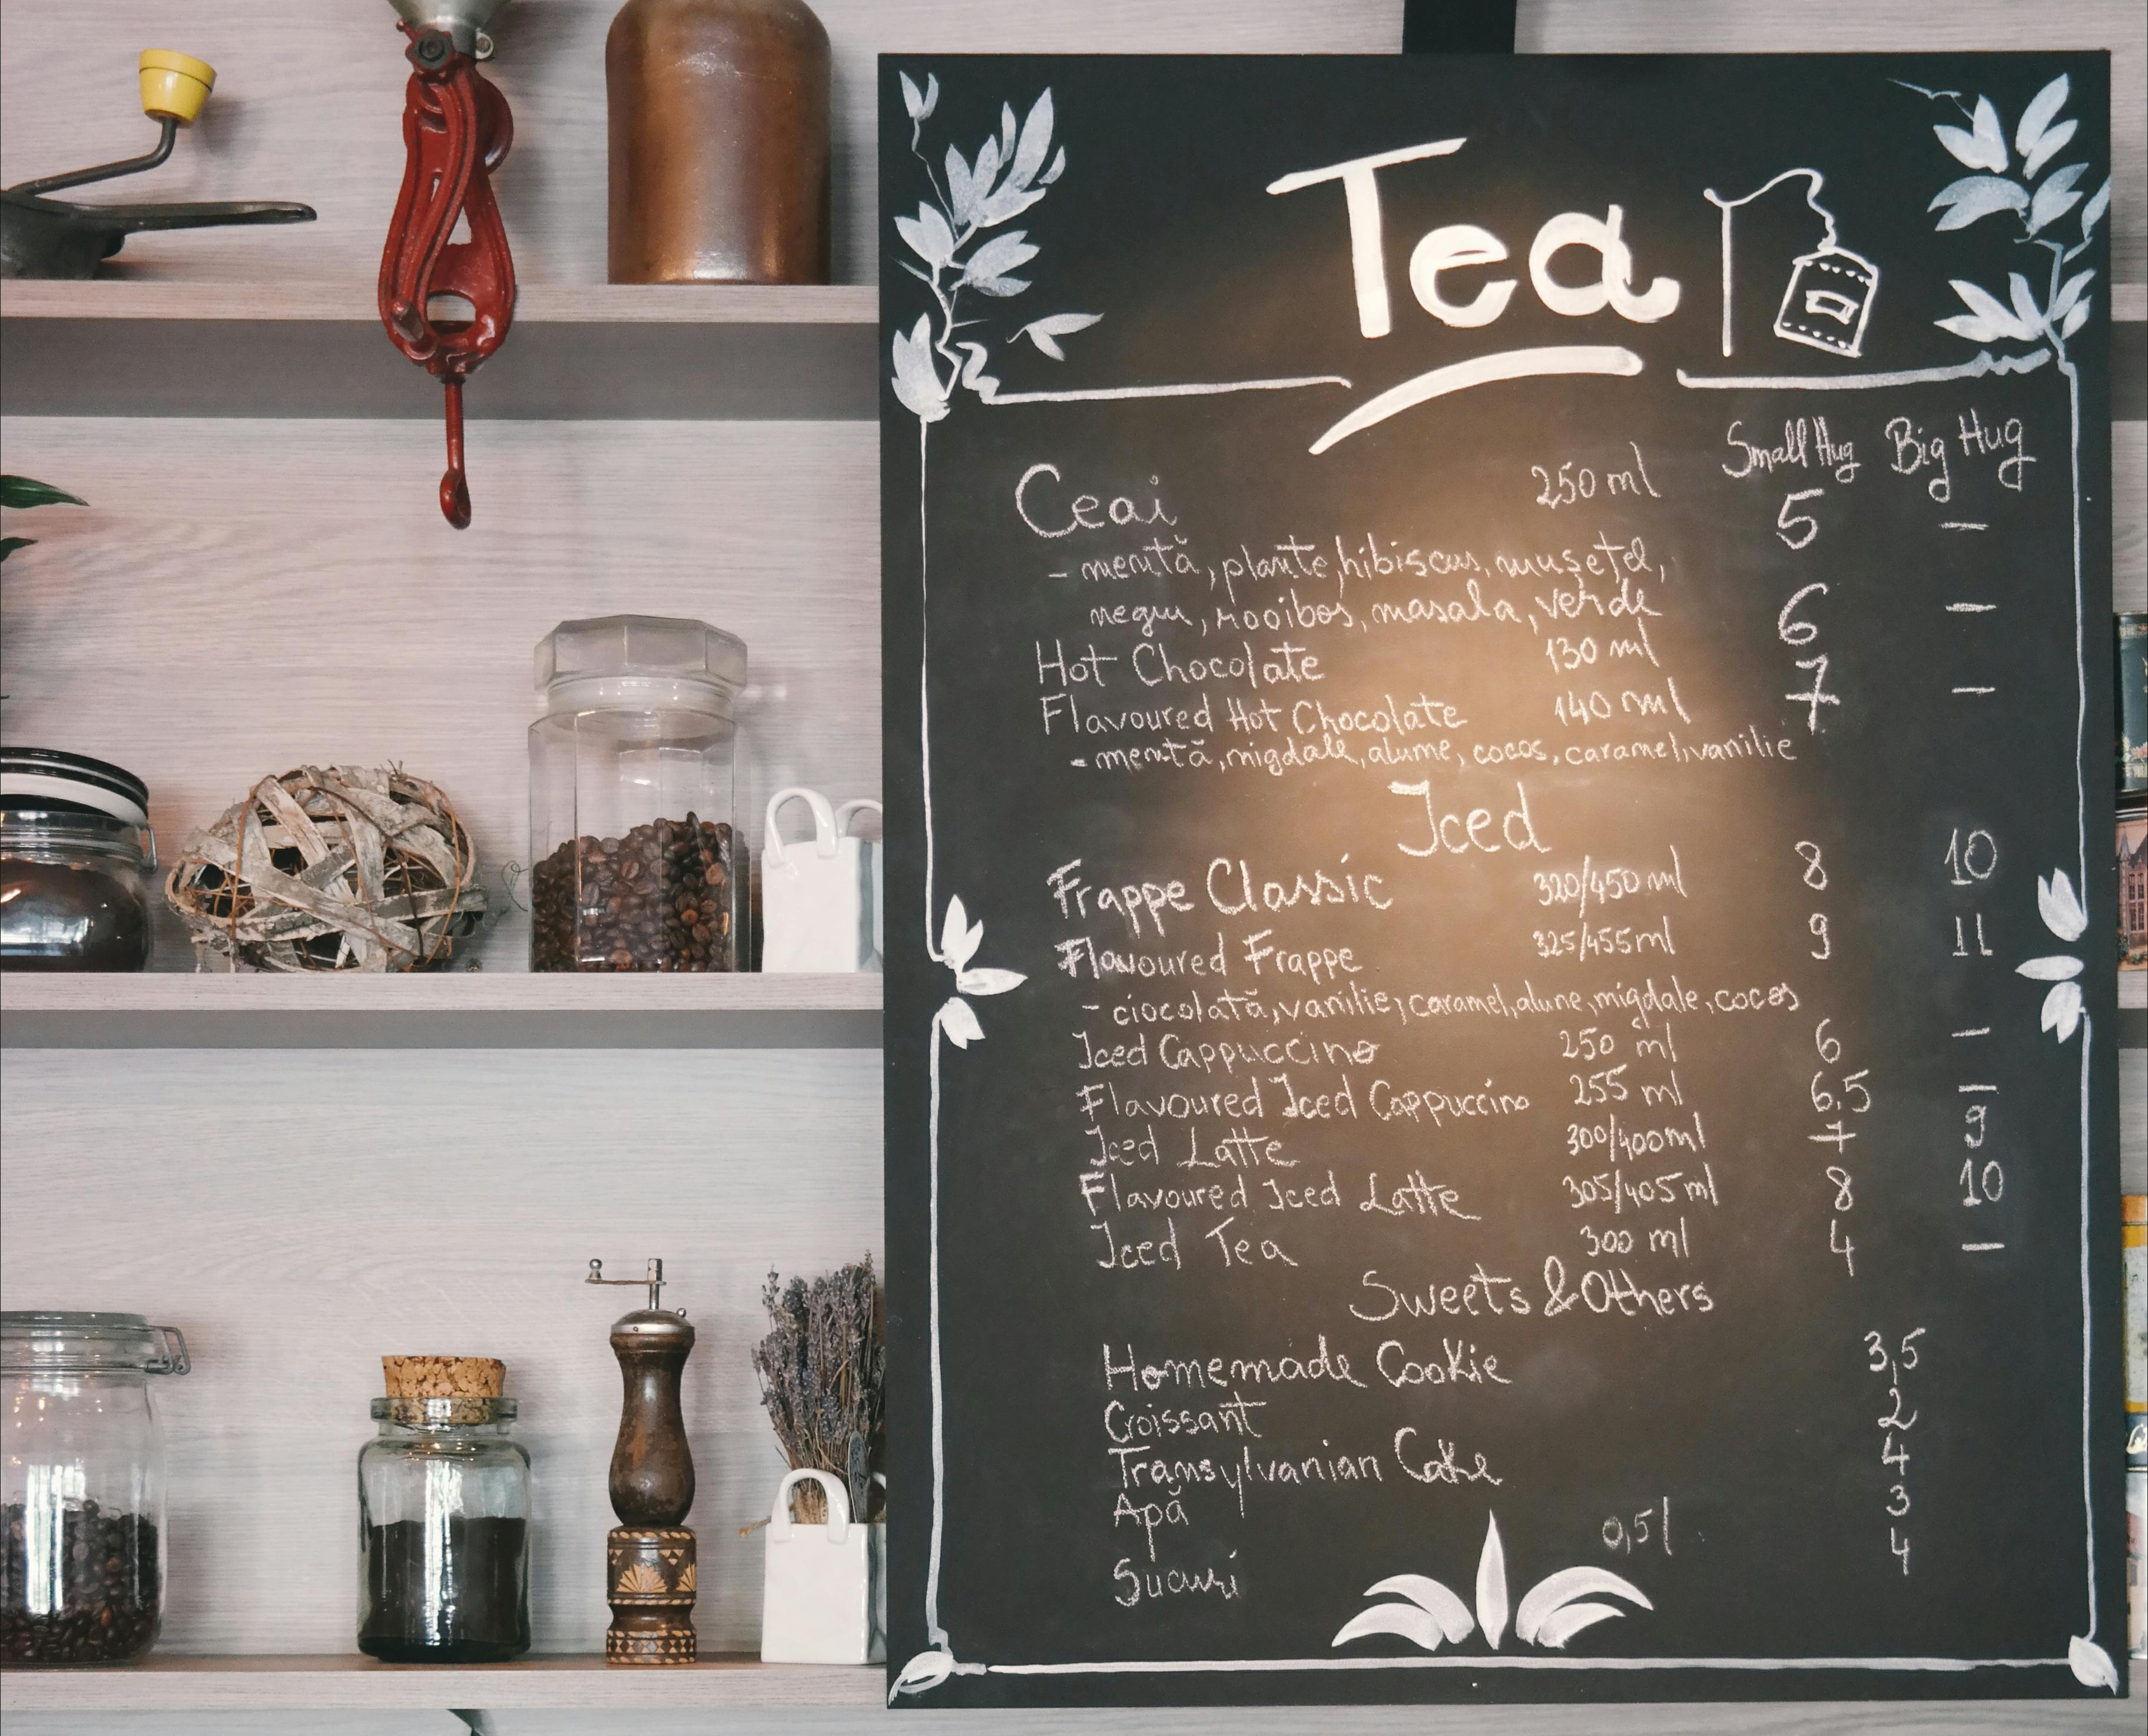 Tea
Small Hug Big Hug
Ceai 250 ml 5 –
- mentă, plante, hibiscus, mușețel,
negru, rooibos, masala, verde
Hot Chocolate 130 ml 6 –
Flavoured Hot Chocolate 140 ml 7 –
- mentă, migdale, alume, cocos, caramel, vanilie
Iced
Frappe Classic 320/450 ml 8 10
Flavoured Frappe 325/455 ml 9 11
- ciocolată, vanilie, caramel, alune, migdale, cocos
Iced Cappuccino 250 ml 6 –
Flavoured Iced Cappuccino 255 ml 6,5 –
Iced Latte 300/400 ml 7 9
Flavoured Iced Latte 305/405 ml 8 10
Iced Tea 300 ml 4 –
Sweets & Others
Homemade Cookie 3,5
Croissant 2
Transylvanian Cake 4
Apă 3
Sucuri 0,5 l 4